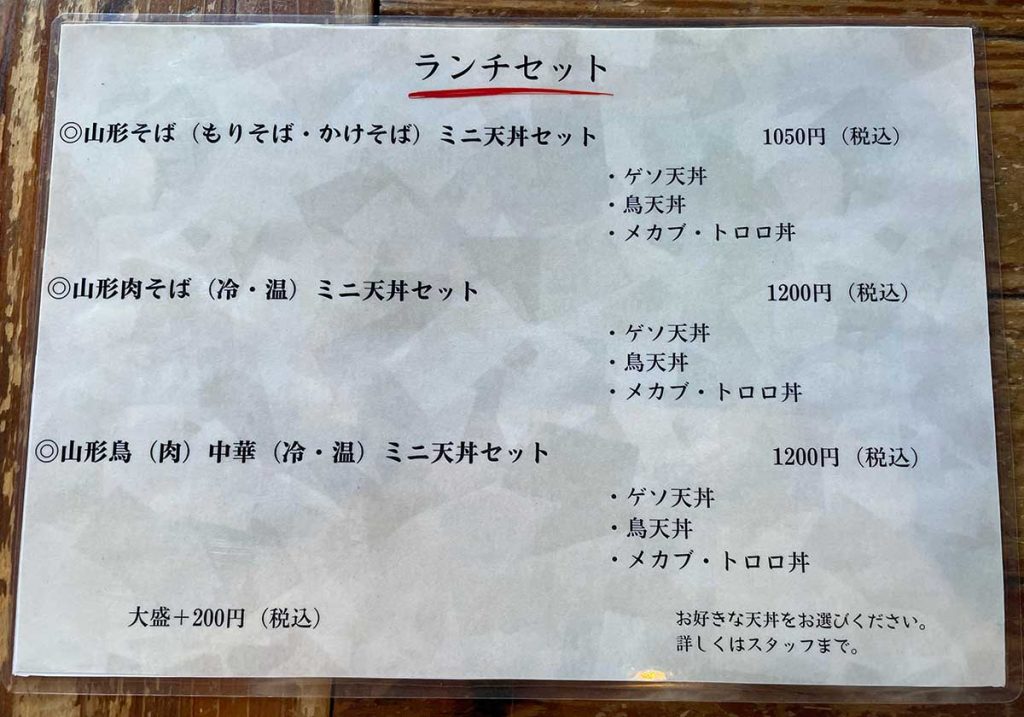 ランチセット
◎山形そば（もりそば・かけそば）ミニ天丼セット 1050円（税込）
・ゲソ天丼
・鳥天丼
・メカブ・トロロ丼
◎山形肉そば（冷・温）ミニ天丼セット 1200円（税込）
・ゲソ天丼
・鳥天丼
・メカブ・トロロ丼
◎山形鳥（肉）中華（冷・温）ミニ天丼セット 1200円（税込）
・ゲソ天丼
・鳥天丼
・メカブ・トロロ丼
大盛＋200円（税込）
お好きな天丼をお選びください。
詳しくはスタッフまで。